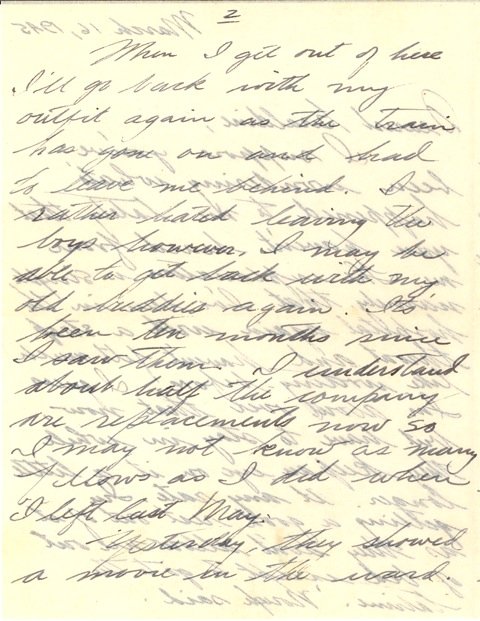 2
When I get out of here
I'll go back with my
outfit again as the train
has gone on and had
to leave me behind. I
rather hated leaving the
boys however, I may be
able to get back with my
old buddies again. It's
been ten months since
I saw them. I understand
about half the company
are replacements now so
I may not know as many
fellows as I did when
I left last May.
Yesterday, they showed
a movie in the ward.